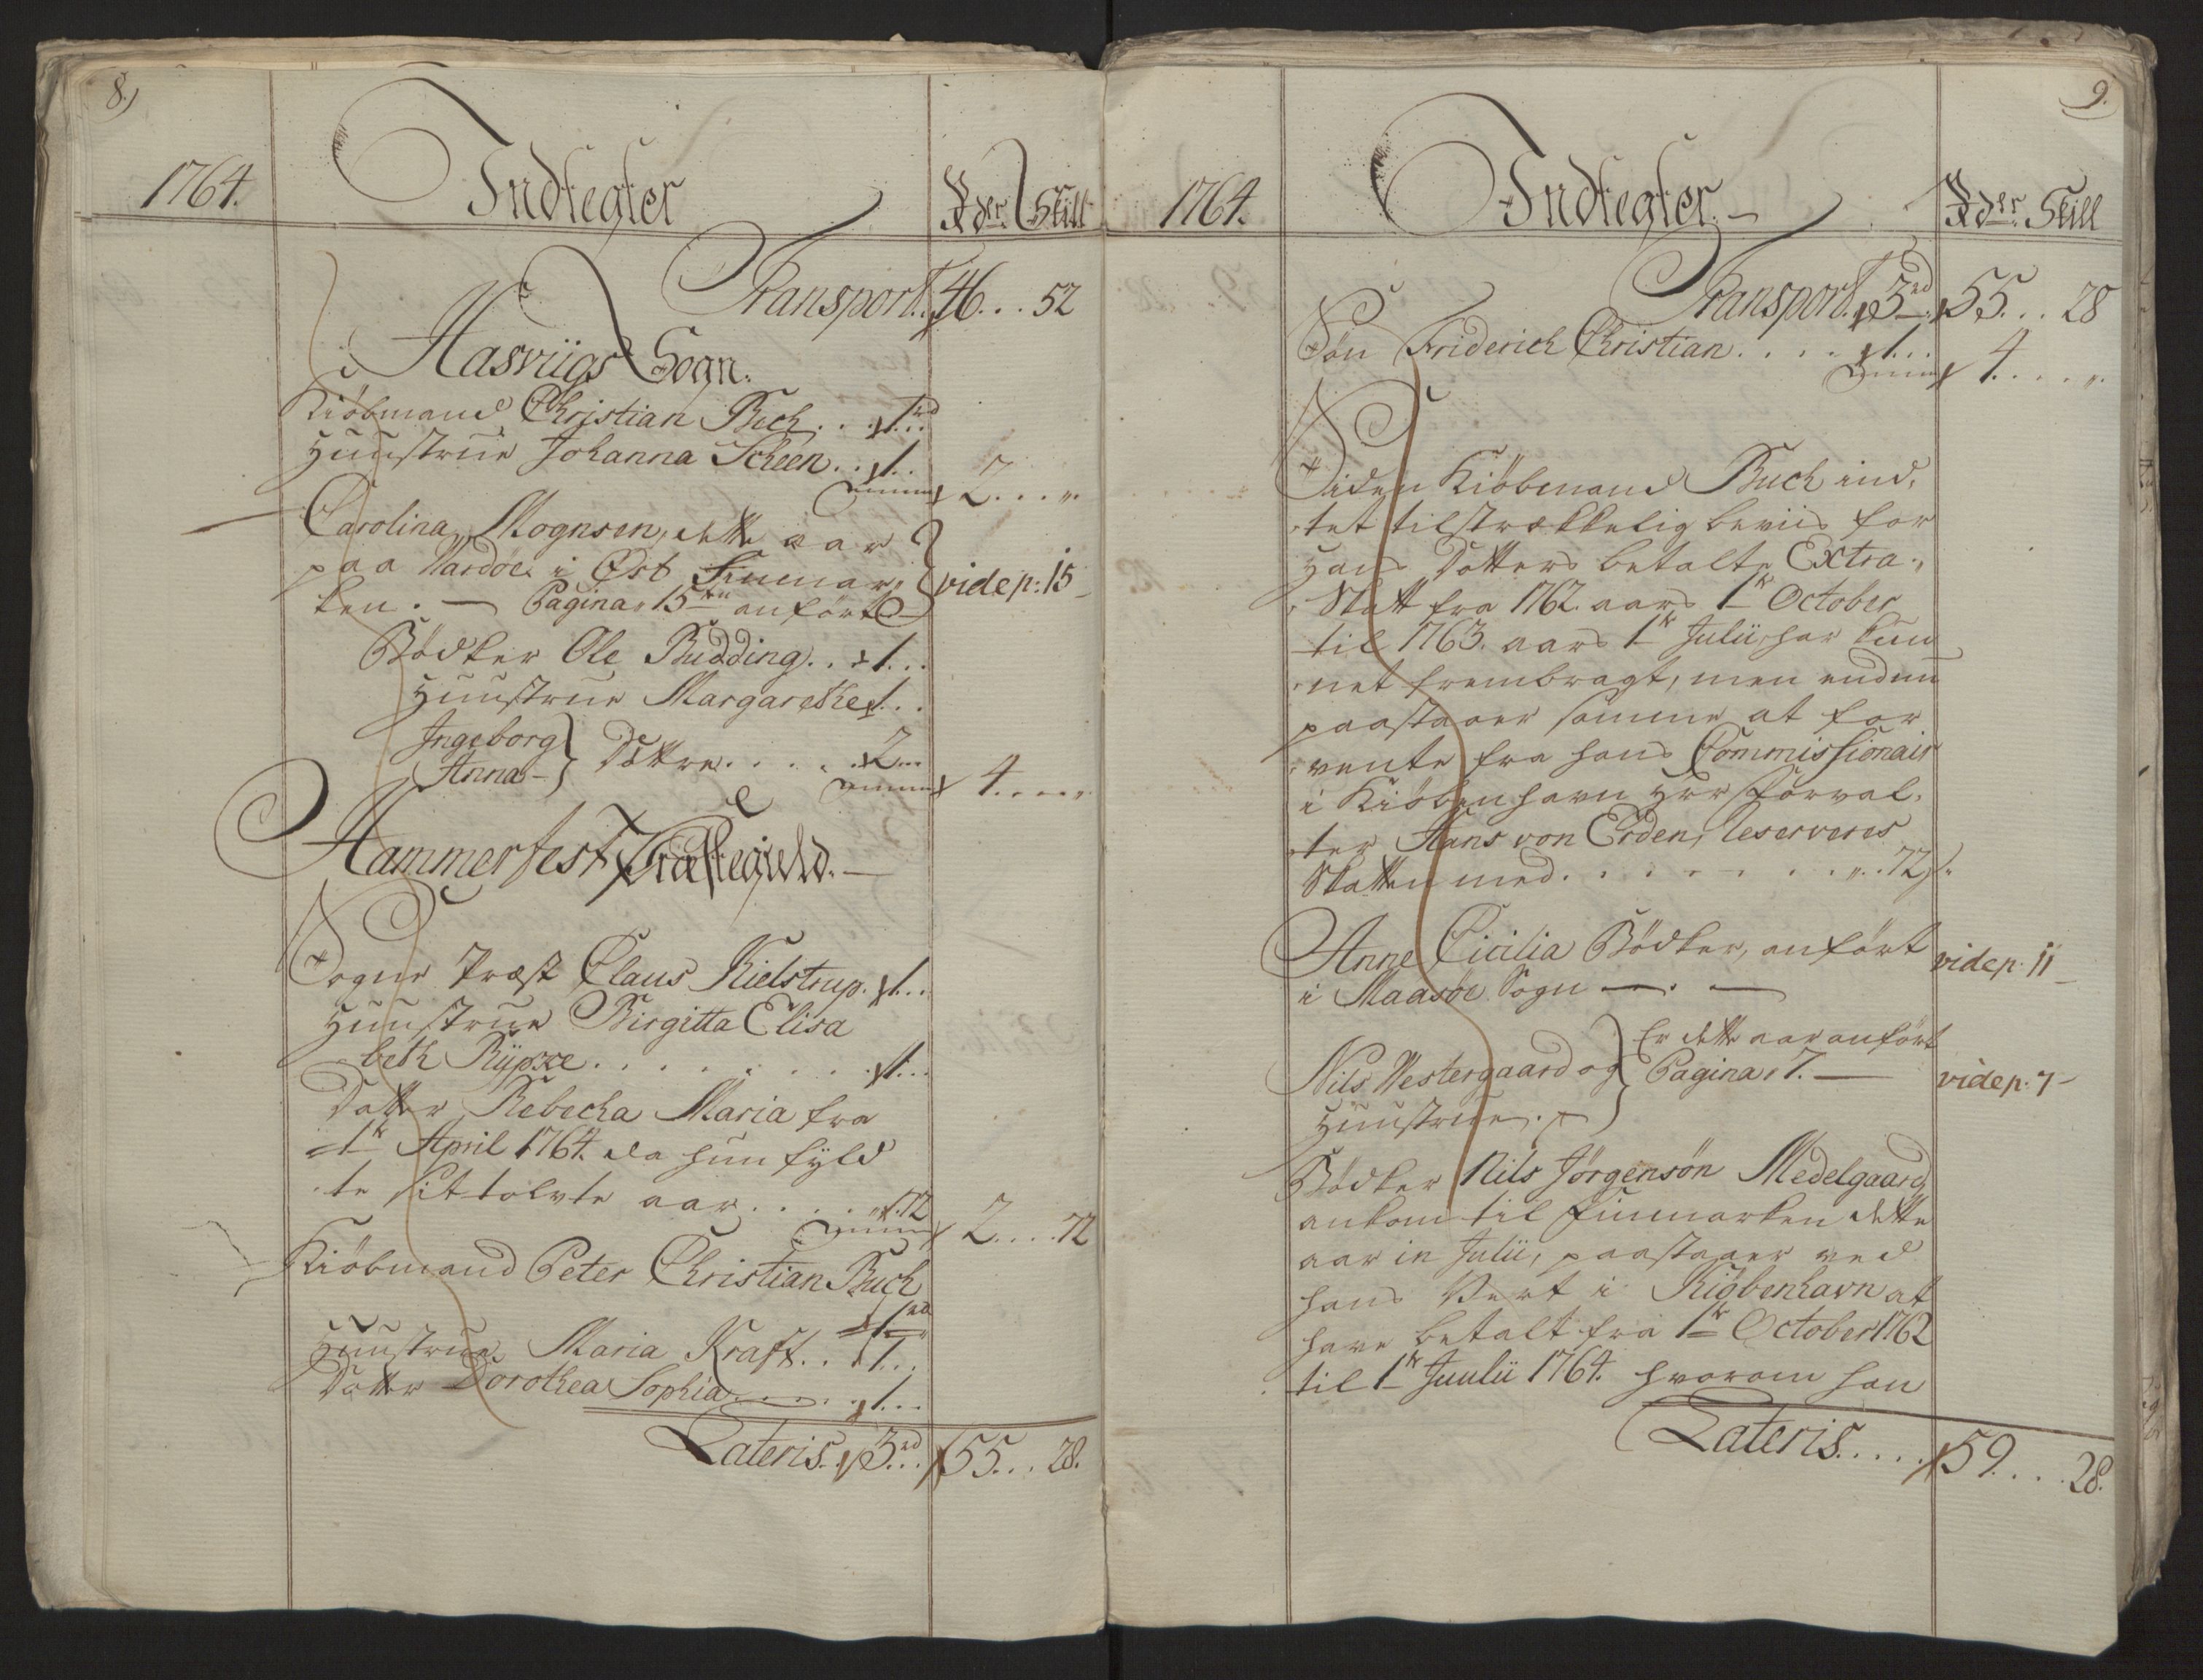 8.)
1764. Indtegter Rdr. Skill
Transport 46... 52
Hasvigs Sogn.
Kiöbmand Christian Buch... 1rd
Huustrue Johanna Scheen.. 1..
2... "
Carolina Mognsen, dette aar
paa Vardöe i Öst Finmar,
ken. — Pagina 15 anfört — vide p: 15
Bödker Ole Budding.. 1..
Huustrue Margarethe 1..
Ingeborg
Anna — } Döttre..... 2...
4.... "
Hammerfest Præstegield. —
Sogne Præst Claus Kielstrup. 1..
Huustrue Birgitta Elisa
beth Rÿpze......... 1...
Datter Rebecha Maria fra
1te April 1764. da hun fÿld
te sit tolvte aar.... ".72
2.... 72
Kiöbmand Peter Christian Buch
1rd
Huustrue Maria Kraft.. 1...
Datter Dorothea Sophia..... 1...
Lateris. 3rd 55... 28.
9.
1764. Indtegter. — Rdr. Skill
Transport. 3rd. 55... 28
Sön Friderich Christian.... 1...
4.... "
Siden Kiöbmand Buch ind,
tet tilstrækkelig beviis for
hans Dotters betalte Extra,
Skatt fra 1762. aars 1te October
til 1763. aars 1te Julii, har kun,
net frembragt, men endnu
paastaaer samme at for
vente fra hans Commissionair
i Kiöbenhavn Hrr Forval,
ter Hans von Erden, reserveres
Skatten med......... ". 72 s.
Anne Cicilia Bödker, anfört vide p. 11
i Maasöe Sogn —. —
Nils Westergaard og } Er dette aar anfört
Huustrue. } Pagina 7. — vide p. 7 —
Bödker Nils Jörgensön Medelgaard
ankom til Finmarken dette
aar in Julii, paastaaer ved
hans Vert i Kiöbenhavn at
have betalt fra 1te October 1762
til 1te Juulii 1764. hvorom han
Lateris..... 59.... 28.